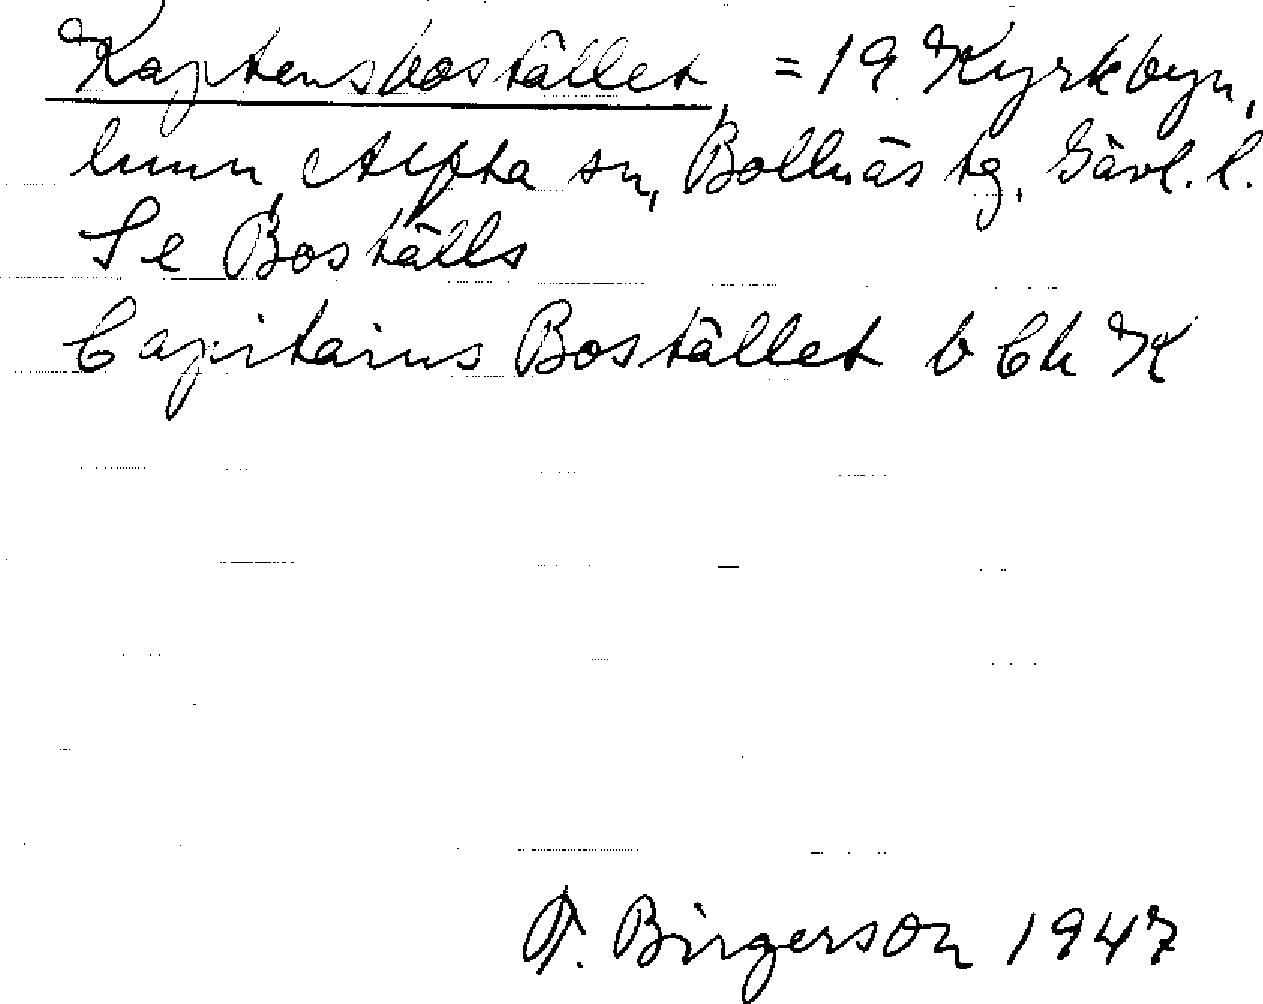 Kaptensbostället, = 19 Kyrkbyn,
hmn, Alfta sn, Bollnäs tg, Gävl. l.
Se Boställs
Capitains Bostället b Ch K
F. Birgerson 1947